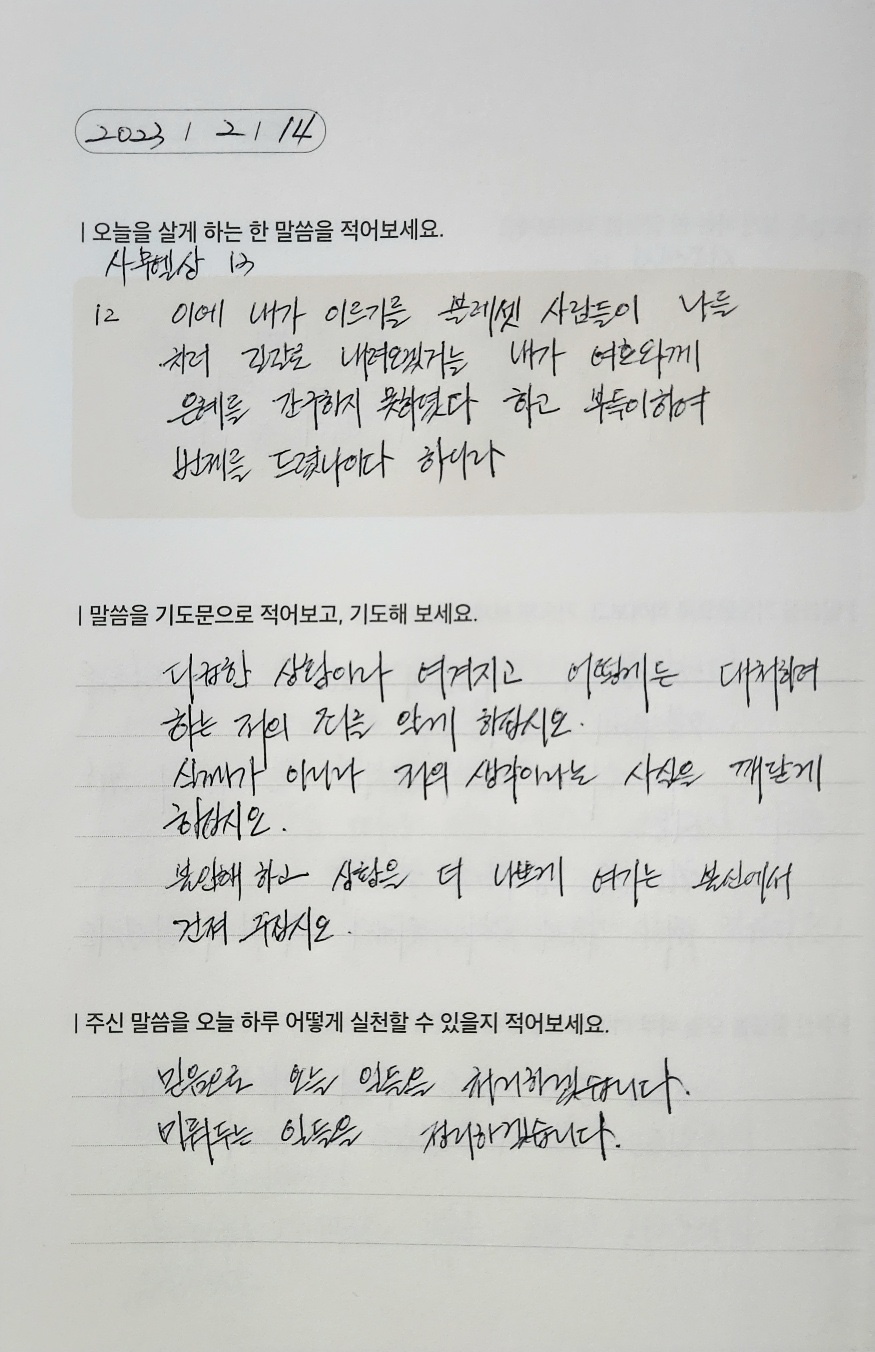 2023 | 2 | 14
| 오늘을 살게 하는 한 말씀을 적어보세요.
사무엘상 13
12 이에 내가 이르기를 블레셋 사람들이 나를
치러 길갈로 내려오겠거늘 내가 여호와께
은혜를 간구하지 못하였다 하고 부득이하여
번제를 드렸나이다 하니라
| 말씀을 기도문으로 적어보고, 기도해 보세요.
다급한 상황이라 여겨지고 어떻게든 대처하여
하는 저의 죄를 알게 하십시오.
실제가 아니라 저의 생각이라는 사실을 깨닫게
하십시오.
불안해 하고 상황을 더 나쁘게 여기는 불신에서
건져 주십시오.
| 주신 말씀을 오늘 하루 어떻게 실천할 수 있을지 적어보세요.
믿음으로 오늘 일들을 처리하겠습니다.
미뤄두는 일들을 정리하겠습니다.